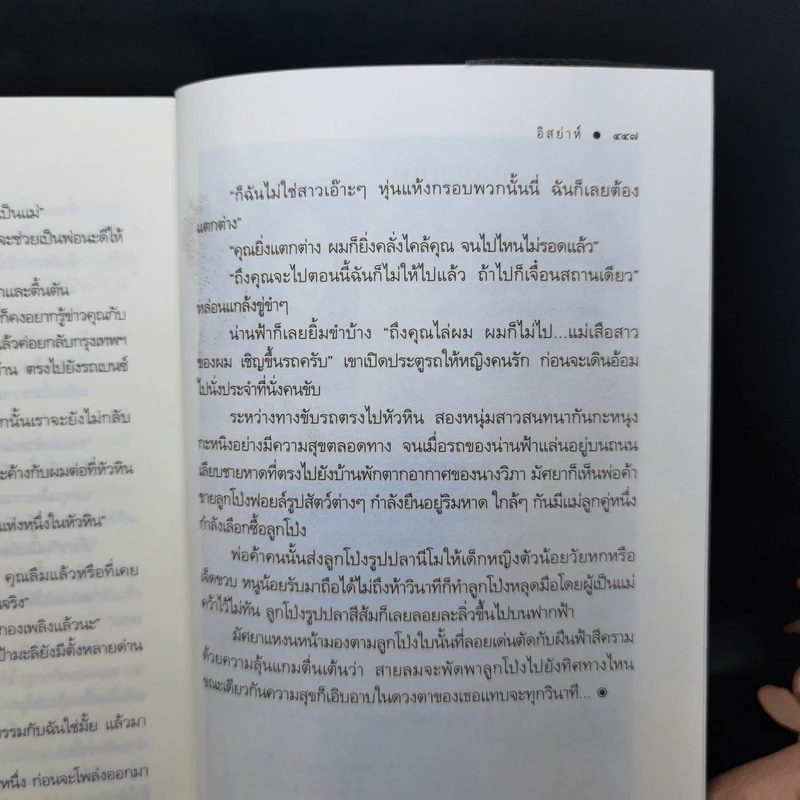 เป็นแม่”
จะช่วยเป็นพ่อนะดีให้
กและตื้นตัน
ก็คงอยากรู้ข่าวคุณกับ
ล้วค่อยกลับกรุงเทพฯ
้าน ตรงไปยังรถเบนซ์
กนั้นเราจะยังไม่กลับ
ะค้างกับผมต่อที่หัวหิน
แห่งหนึ่งในหัวหิน”
คุณลืมแล้วหรือที่เคย
นจริง”
กองเพลิงแล้วนะ”
ป้ามะลิยังมีตั้งหลายด่าน
รรมกับฉันใช่มั้ย แล้วมา
หนึ่ง ก่อนจะโพล่งออกมา
อิสย่าห์ ● ๔๔๗
“ก็ฉันไม่ใช่สาวเอ๊าะๆ หุ่นแห้งกรอบพวกนั้นนี่ ฉันก็เลยต้อง
แตกต่าง”
“คุณยิ่งแตกต่าง ผมก็ยิ่งคลั่งไคล้คุณ จนไปไหนไม่รอดแล้ว”
“ถึงคุณจะไปตอนนี้ฉันก็ไม่ให้ไปแล้ว ถ้าไปก็เจื๋อนสถานเดียว”
หล่อนแกล้งขู่ขำๆ
น่านฟ้าก็เลยยิ้มขำบ้าง “ถึงคุณไล่ผม ผมก็ไม่ไป...แม่เสือสาว
ของผม เชิญขึ้นรถครับ” เขาเปิดประตูรถให้หญิงคนรัก ก่อนจะเดินอ้อม
ไปนั่งประจำที่นั่งคนขับ
ระหว่างทางขับรถตรงไปหัวหิน สองหนุ่มสาวสนทนากันกะหนุง
กะหนิงอย่างมีความสุขตลอดทาง จนเมื่อรถของน่านฟ้าแล่นอยู่บนถนน
เลียบชายหาดที่ตรงไปยังบ้านพักตากอากาศของนางวิภา มัศยาก็เห็นพ่อค้า
ขายลูกโป่งฟอยล์รูปสัตว์ต่างๆ กำลังยืนอยู่ริมหาด ใกล้ๆ กันมีแม่ลูกคู่หนึ่ง
กำลังเลือกซื้อลูกโป่ง
พ่อค้าคนนั้นส่งลูกโป่งรูปปลานีโมให้เด็กหญิงตัวน้อยวัยหกหรือ
เจ็ดขวบ หนูน้อยรับมาถือได้ไม่ถึงห้าวินาทีก็ทำลูกโป่งหลุดมือโดยผู้เป็นแม่
คว้าไว้ไม่ทัน ลูกโป่งรูปปลาสีส้มก็เลยลอยละลิ่วขึ้นไปบนฟากฟ้า
มัศยาแหงนหน้ามองตามลูกโป่งใบนั้นที่ลอยเด่นตัดกับผืนฟ้าสีคราม
ด้วยความลุ้นแกมตื่นเต้นว่า สายลมจะพัดพาลูกโป่งไปยังทิศทางไหน
ขณะเดียวกันความสุขก็เอิบอาบในดวงตาของเธอแทบจะทุกวินาที... ◉